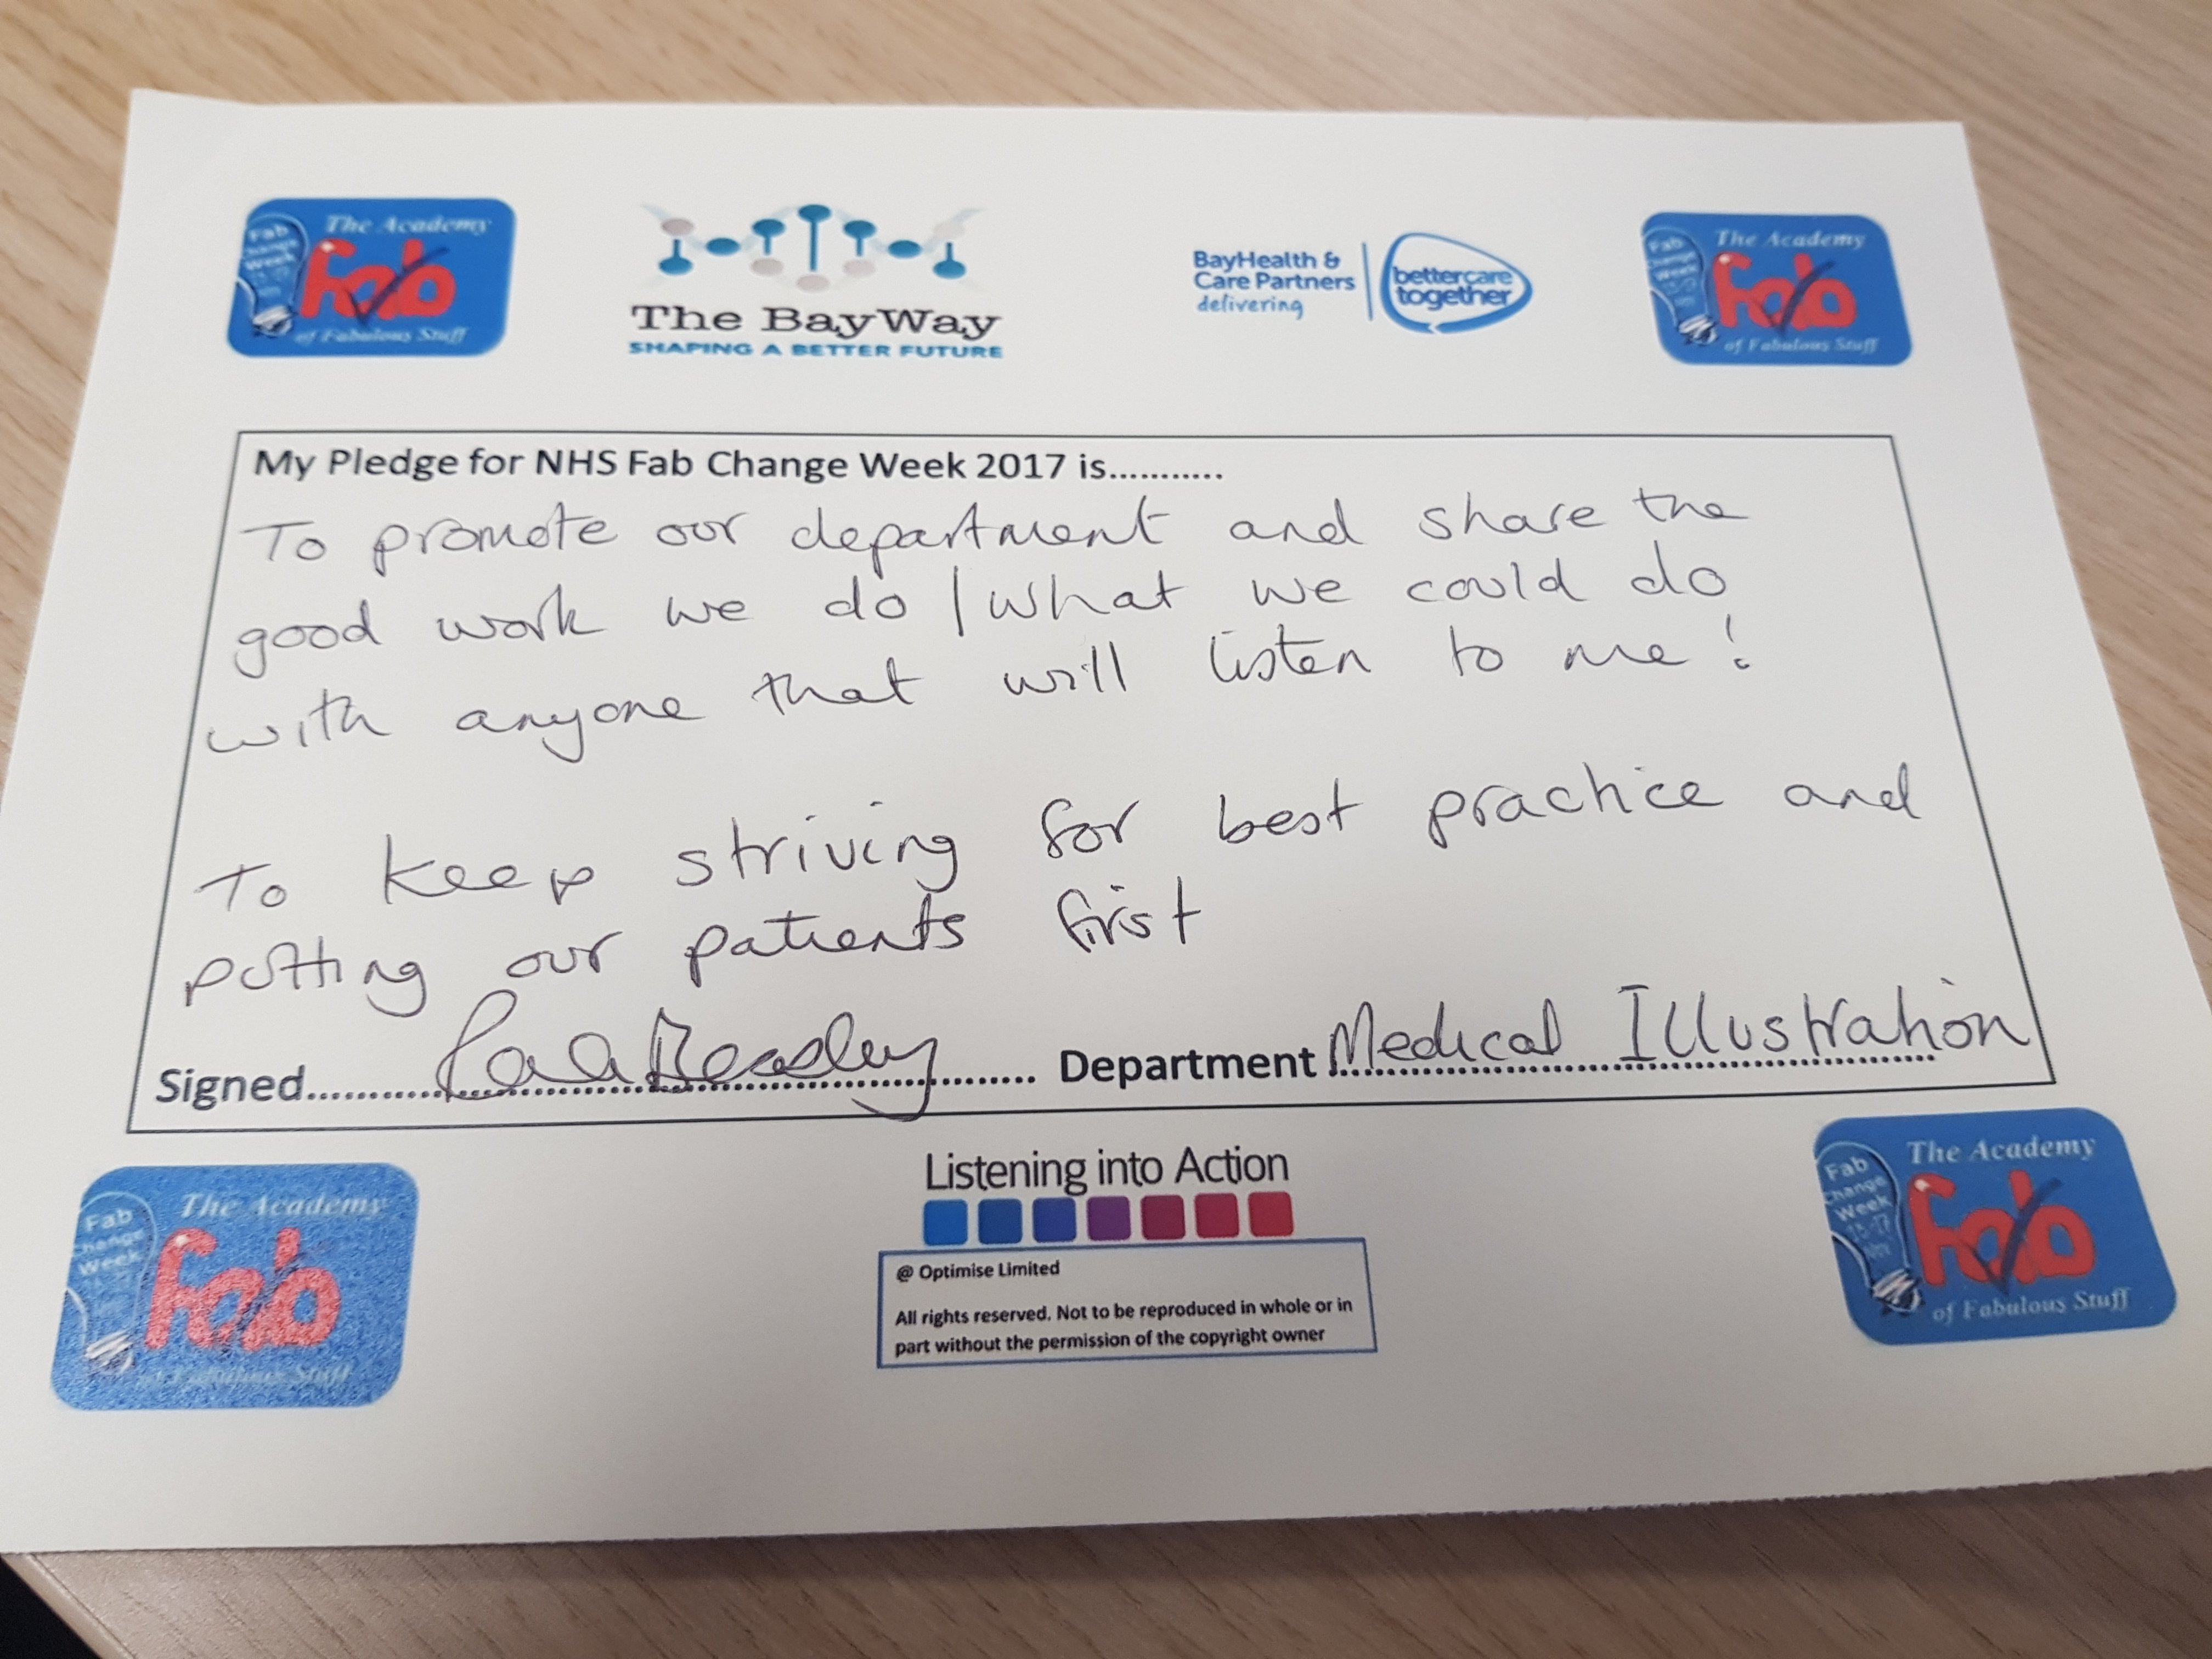 The Academy
Fab
Change
Week
Fab
of Fabulous Stuff
The BayWay
SHAPING A BETTER FUTURE
BayHealth &
Care Partners
delivering
bettercare
together
The Academy
Fab
Change
Week
Fab
of Fabulous Stuff
My Pledge for NHS Fab Change Week 2017 is...........
To promote our department and share the
good work we do / what we could do
with anyone that will listen to me!
To keep striving for best practice and
putting our patients first
Signed.......... Beasley .......... Department Medical Illustration
The Academy
Fab
Change
Week
Fab
of Fabulous Stuff
Listening into Action
@ Optimise Limited
All rights reserved. Not to be reproduced in whole or in
part without the permission of the copyright owner
The Academy
Fab
Change
Week
13-17
Nov
Fab
of Fabulous Stuff